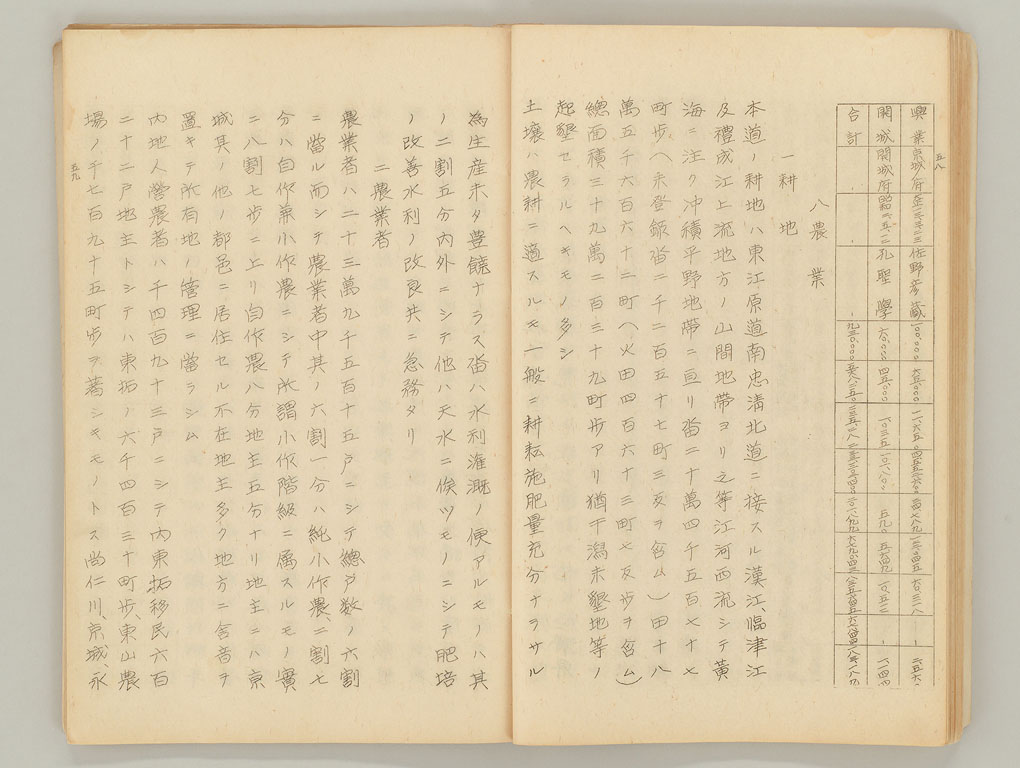 五八
興業 京城府 佐野彦蔵
開城 開城府 孔聖學
合計
八農業
一耕地
本道ノ耕地ハ東江原道南忠清北道ニ接スル漢江、臨津江
及禮成江上流地方ノ山間地帯ヨリ之等江河西流シテ黄
海ニ注ク沖積平野地帯ニ亘リ畓二十萬四千五百七十七
町歩(未登録畓二千二百五十七町三反ヲ含ム)田十八
萬五千六百六十二町(火田四百六十三町七反歩ヲ含ム)
總面積三十九萬二百三十九町歩アリ猶干潟未墾地等ノ
起墾セラルヘキモノ多シ
土壌ハ農耕ニ適スルモ一般ニ耕耘施肥量充分ナラサル
為生産未タ豊饒ナラス畓ハ水利潅漑ノ便アルモノハ其
ノ二割五分内外ニシテ他ハ天水ニ俟ツモノニシテ肥培
ノ改善水利ノ改良共ニ急務タリ
二農業者
農業者ハ二十三萬九千五百十五戸ニシテ總戸数ノ六割
ニ當ル而シテ農業者中其ノ六割一分ハ純小作農、二割七
分ハ自作兼小作農ニシテ所謂小作階級ニ属スルモノ實
ニ八割七歩ニ上リ自作農八分地主五分ナリ地主ニハ京
城其ノ他ノ都邑ニ居住セル不在地主多ク地方ニ舎音ヲ
置キテ所有地ノ管理ニ當ラシム
内地人營農者ハ千四百九十三戸ニシテ内東拓移民六百
二十二戸地主トシテハ東拓ノ六千四百三十町歩、東山農
場ノ千七百九十五町歩ヲ著シキモノトス尚仁川、京城、永
五九